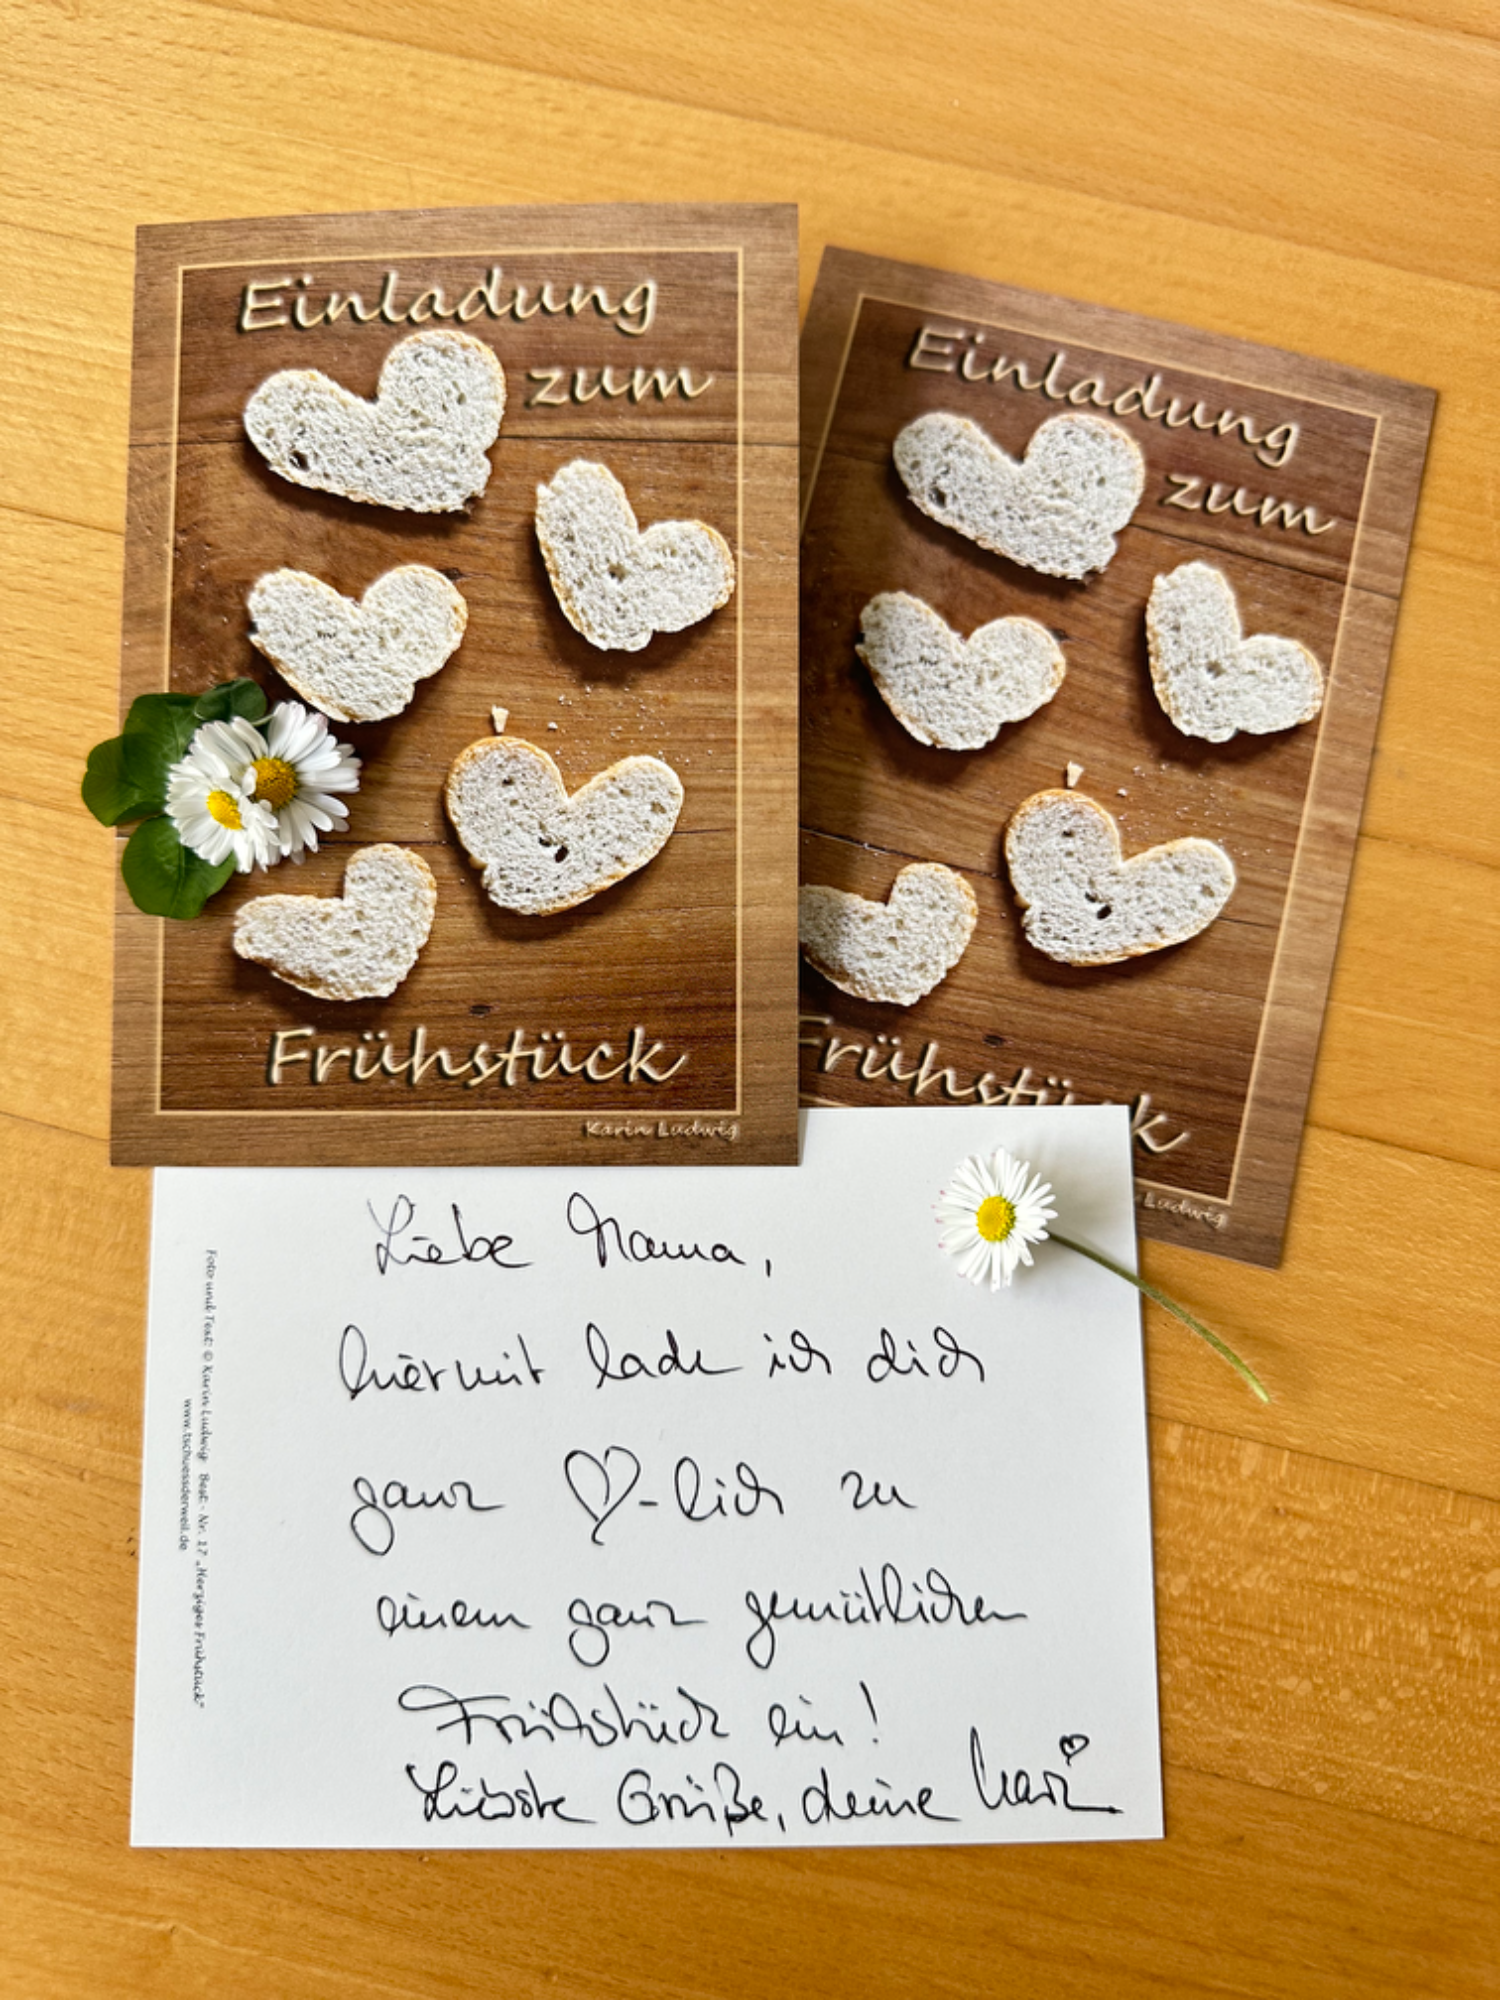 Einladung
zum
Frühstück
Karin Ludwig
Einladung
zum
Frühstück
Ludwig
Liebe Mama,
hiermit lade ich dich
ganz ♡-lich zu
einem ganz gemütlichen
Frühstück ein!
Liebste Grüße, deine
Foto und Text: © Karin Ludwig Best.-Nr. 17 „Herziges Frühstück"
www.tschuessderweil.de